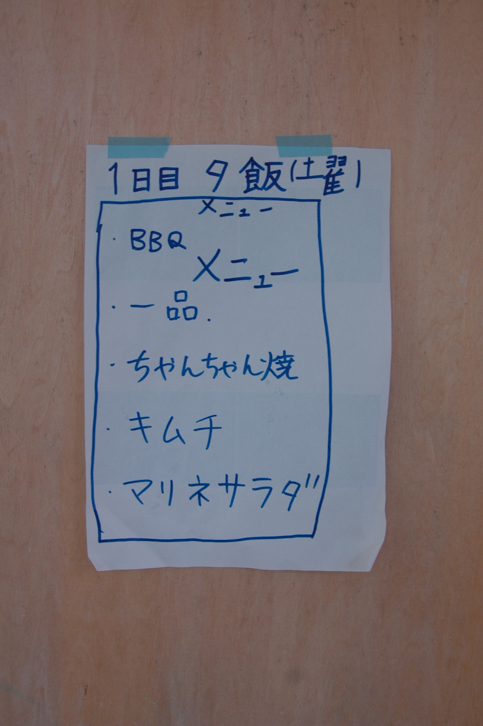 1日目 夕飯(土曜)
メニュー
・BBQ
メニュー
・一品.
・ちゃんちゃん焼
・キムチ
・マリネサラダ